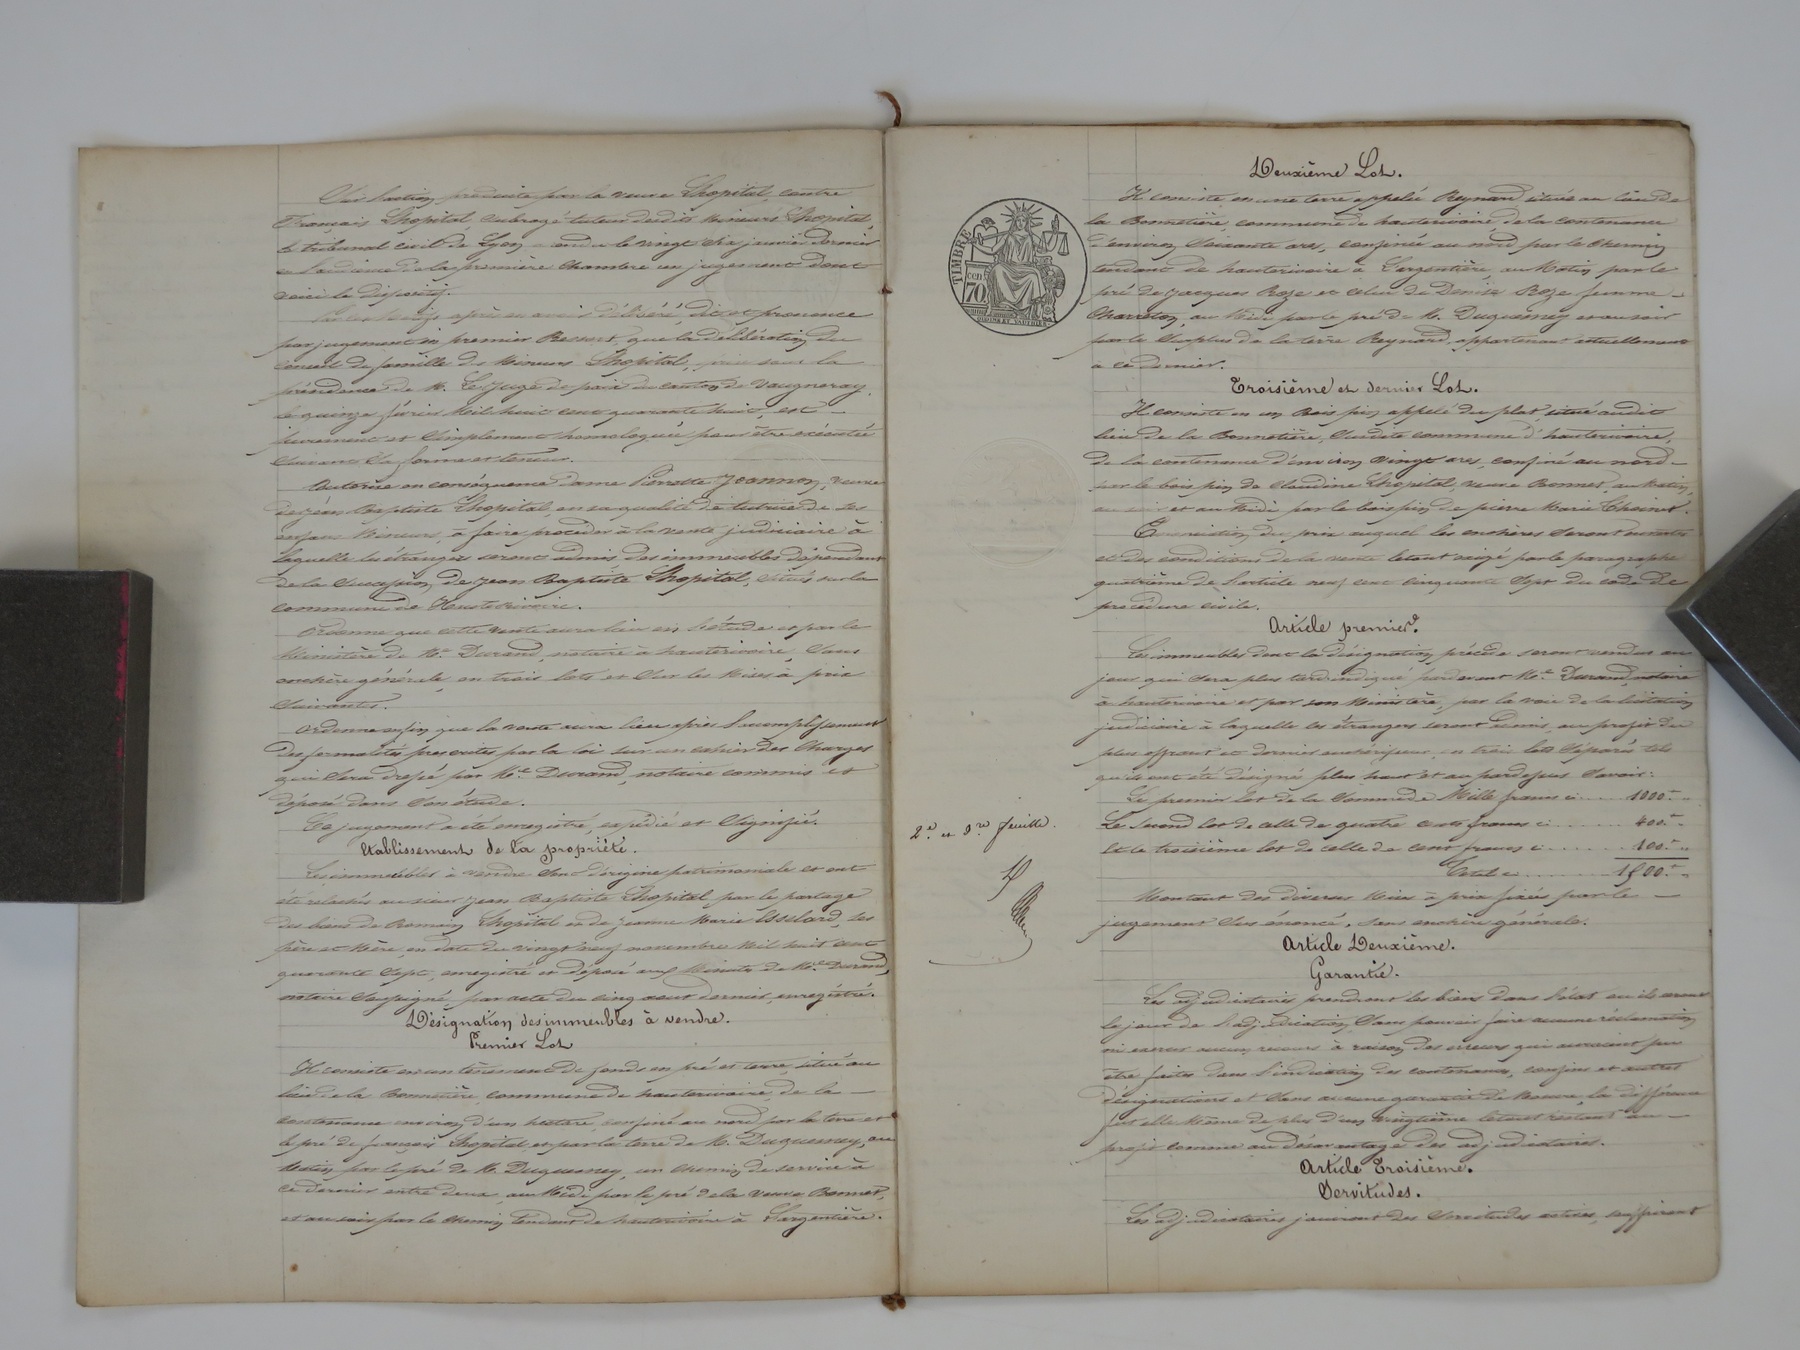 Sur l'action, produite par la veuve Lhopital, contre
François Lhopital, subrogé tuteur desdits Mineurs Lhopital,
le tribunal civil de Lyon a rendu le vingt six janvier dernier
en l'audience de la première chambre un jugement dont
voici le dispositif.
Par ces motifs après en avoir délibéré, dit et prononce
par jugement en premier Ressort, que la délibération du
conseil de famille des Mineurs Lhopital, prise sous la
présidence de M. Le Juge de paix du canton de Vaugneray,
le quinze février Mil huit cent quarante huit, est
purement et simplement homologuée pour être exécutée
suivant sa forme et teneur.
Autorise en conséquence dame Pierrette Jeannon, veuve
de Jean Baptiste Lhopital, en sa qualité de tutrice de ses
enfans Mineurs, à faire procéder à la vente judiciaire à
laquelle les étrangers seront admis, des immeubles dépendant
de la succession de Jean Baptiste Lhopital, situés sur la
commune de Hauterivoire.
Ordonne que cette vente aura lieu en l'étude et par le
Ministère de Me. Durand, notaire à hauterivoire, sans
enchère générale, en trois lots et sur les Mises à prix
suivantes.
Ordonne enfin que la vente aura lieu après l'accomplissement
des formalités prescrites par la loi sur un cahier des charges
qui sera dressé par Me. Durand, notaire commis et
déposé dans son étude.
Ce jugement a été enregistré, expédié et signifié.
Etablissement de la propriété.
Les immeubles à vendre sont d'origine patrimoniale et ont
été relachés au sieur Jean Baptiste Lhopital, par le partage
des biens de Romain Lhopital et de Jeanne Marie Asselard, ses
père et Mère, en date du vingt neuf novembre Mil huit cent
quarante sept, enregistré et déposé aux Minutes de Me. Durand,
notaire soussigné, par acte du cinq aout dernier, enregistré.
Désignation des immeubles à vendre.
Premier Lot
Il consiste en un tènement de fonds en pré et terre, situé au
lieu de la Bonnetière, commune de hauterivoire, de la
contenance environ d'un hectare, confiné au nord par la terre et
le pré de françois Lhopital et par la terre de M. Duguesney, au
Matin par le pré de M. Duguesney, un chemin de service à
ce dernier entre deux, au Midi par le pré de la veuve Bonnet,
et au soir par le chemin tendant de hauterivoire à Largentière.
TIMBRE
cen
70
2e. et 3re feuille.
Deuxième Lot.
Il consiste en une terre appelée Reynard située au lieu de
la Bonnetière, commune de hauterivoire, de la contenance
d'environ Soixante ares, confinée au nord par le chemin
tendant de hauterivoire à Largentière, au Matin par le
pré de Jacques Roze et celui de Denise Roze femme
Charreton, au Midi par le pré de M. Duguesney et au soir
par le Surplus de la terre Reynard, appartenant actuellement
à ce dernier.
Troisième et dernier Lot.
Il consiste en un Bois pin appelé du plat situé audit
lieu de la Bonnetière, Susdite commune d'hauterivoire,
de la contenance d'environ vingt ares, confiné au nord
par le bois pin de Claudine Lhopital, veuve Bonnet, au Matin,
au soir et au Midi par le bois pin de pierre Marie Choinet.
Enonciation du prix auquel les enchères seront ouvertes
et des conditions de la vente letout exigé par le paragraphe
quatrième de l'article neuf cent cinquante sept du code de
procédure civile.
Article premier.
Les immeubles dont la désignation précède seront vendus au
jour qui sera plus tard indiqué pardevant Me. Durand, notaire
à hauterivoire et par son Ministère, par la voie de la licitation
judiciaire à laquelle les étrangers seront admis, au profit du
plus offrant et dernier enchérisseur, en trois lots séparés tels
qu'ils ont été désignés plus haut et au pardessus Savoir:
Le premier lot de la Somme de Mille francs ci ..... 1000.
Le Second lot de celle de quatre cents francs ci ....... 400.
Et le troisième lot de celle de cent francs ci ....... 100.
Total ci ......... 1500.
Montant des diverses Mises à prix fixées par le
jugement sus énoncé, sans enchère générale.
Article Deuxième.
Garantie.
Les adjudicataires prendront les biens dans l'état où ils seront
le jour de l'adjudication, Sans pouvoir faire aucune réclamation
ni exercer aucun recours à raison des erreurs qui auraient pu
être faites dans l'indication des contenances, confins et autres
désignations et Sans aucune garantie de Mesure, la différence
fut elle Même de plus d'un vingtième letout restant au
profit comme au désavantage des adjudicataires.
Article Troisième.
Servitudes.
Les adjudicataires jouiront des Servitudes actives, souffriront